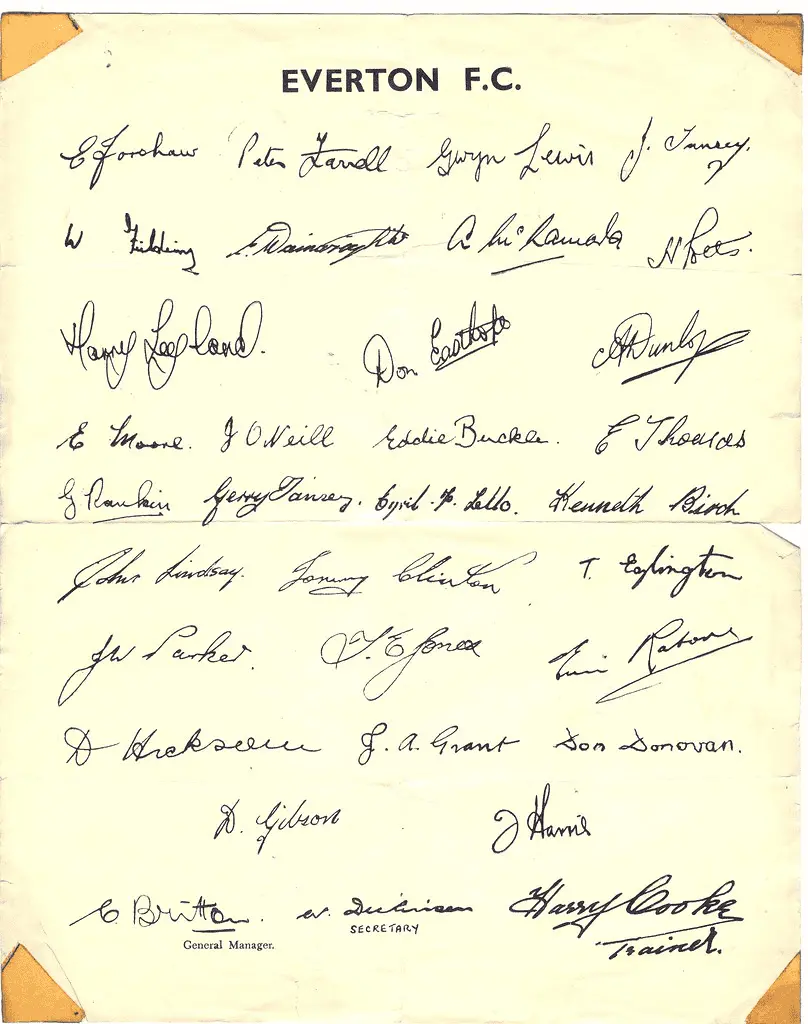 EVERTON F.C.
E Forshaw Peter Farrell Gwyn Lewis J. Tansey.
W Fielding E. Wainwright A McNamara H Potts.
Harry Leyland. Don Easthope A Dunlop
E Moore. J O'Neill Eddie Buckle. E Thomas
G Rankin Gerry Tansey. Cyril . F. Lello. Kenneth Birch
John Lindsay. Tommy Clinton T. Eglington
JW Parker. T. E Jones
D Hickson J. A. Grant Don Donovan.
D. Gibson J Harris
C. Britton. W. Dickinson Harry Cooke
SECRETARY Trainer.
General Manager.